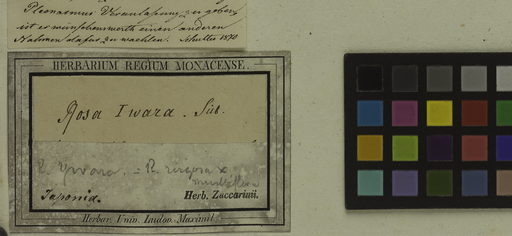 Pleonasmus Veranlassung zu geben,
ist es wünschenswerth einen anderen
Nahmen dafür zu wählen. Schultes 1870
HERBARIUM REGIUM MONACENSE.
Rosa Iwara. Sieb.
R. Ywara. = R. rugosa x
multiflora
Japonia.
Herb. Zuccarinii.
Herbar. Univ. Ludov. Maximil.